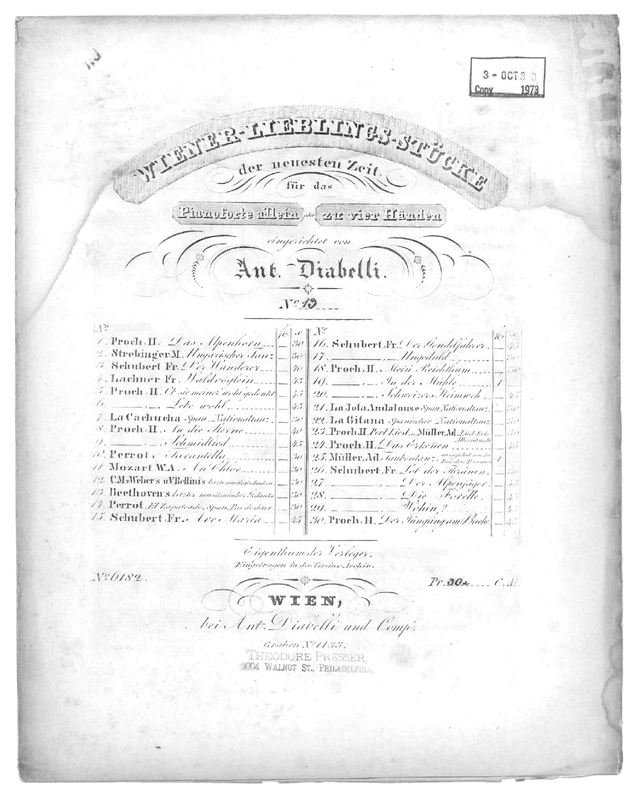 3 - OCT 3 0
Copy 1973
WIENER-LIEBLINGS-STÜCKE
der neuesten Zeit.
für das
Pianoforte allein oder zu vier Händen
eingerichtet von
Ant. Diabelli.
No. 13
1. Proch. H. Das Alpenhorn 30
2. Strebinger M. Ungarischer Tanz 30
3. Schubert Fr. Der Wanderer
4. Lachner Fr. Waldvöglein 45
5. Proch. H.
6. Lebe wohl 45
7. La Cachucha Span. Nationaltanz 30
8. Proch. H. An die Sterne
9. Schmiedlied 45
10. Perrot Tarantella
11. Mozart W.A. An Chloe
12. C.M.v. Weber's u. V. Bellini's
13. Beethoven's letzter musikalischer Gedanke
14. Perrot. El Zapateado, Span. Pas de deux
15. Schubert Fr. Ave Maria 45
No.
16. Schubert Fr. Der Gondelfahrer 45
17. Ungeduld
18. Proch. H. Mein Reichthum
19. In der Mühle 1
20. Schweizers Heimweh 45
21. La Jota Andalouse Span. Nationaltanz
22. La Gitana Spanischer Nationaltanz
23. Proch. H. u. Müller Ad.
24. Proch. H. Das Erkennen
25. Müller Ad. Taubentanz 1
26. Schubert Fr. Lob der Thränen
27. Der Alpenjäger 45
28. Die Forelle 45
29. Wohin? 45
30. Proch. H. Der Jüngling am Bache 45
Eigenthum der Verleger.
Eingetragen in das Vereins-Archiv.
No. 6182.
Pr. 30x C.M.
WIEN,
bei Ant. Diabelli und Comp.
Graben No. 1133.
THEODORE PRESSER,
1004 WALNUT ST., PHILADELPHIA.